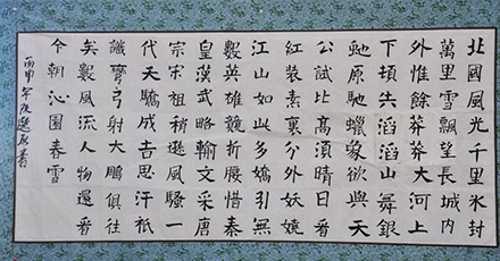 北國風光千里氷封
萬里雪飄望長城内
外惟餘莽莽大河上
下頃失滔滔山舞銀
虵原馳蠟象欲與天
公試比高須晴日看
紅裝素裹分外妖嬈
江山如此多嬌引無
數英雄競折展惜秦
皇漢武略輸文采唐
宗宋祖稍遜風騷一
代天驕成吉思汗祇
識彎弓射大鵬俱往
矣數風流人物還看
今朝沁園春雪
丙申年書